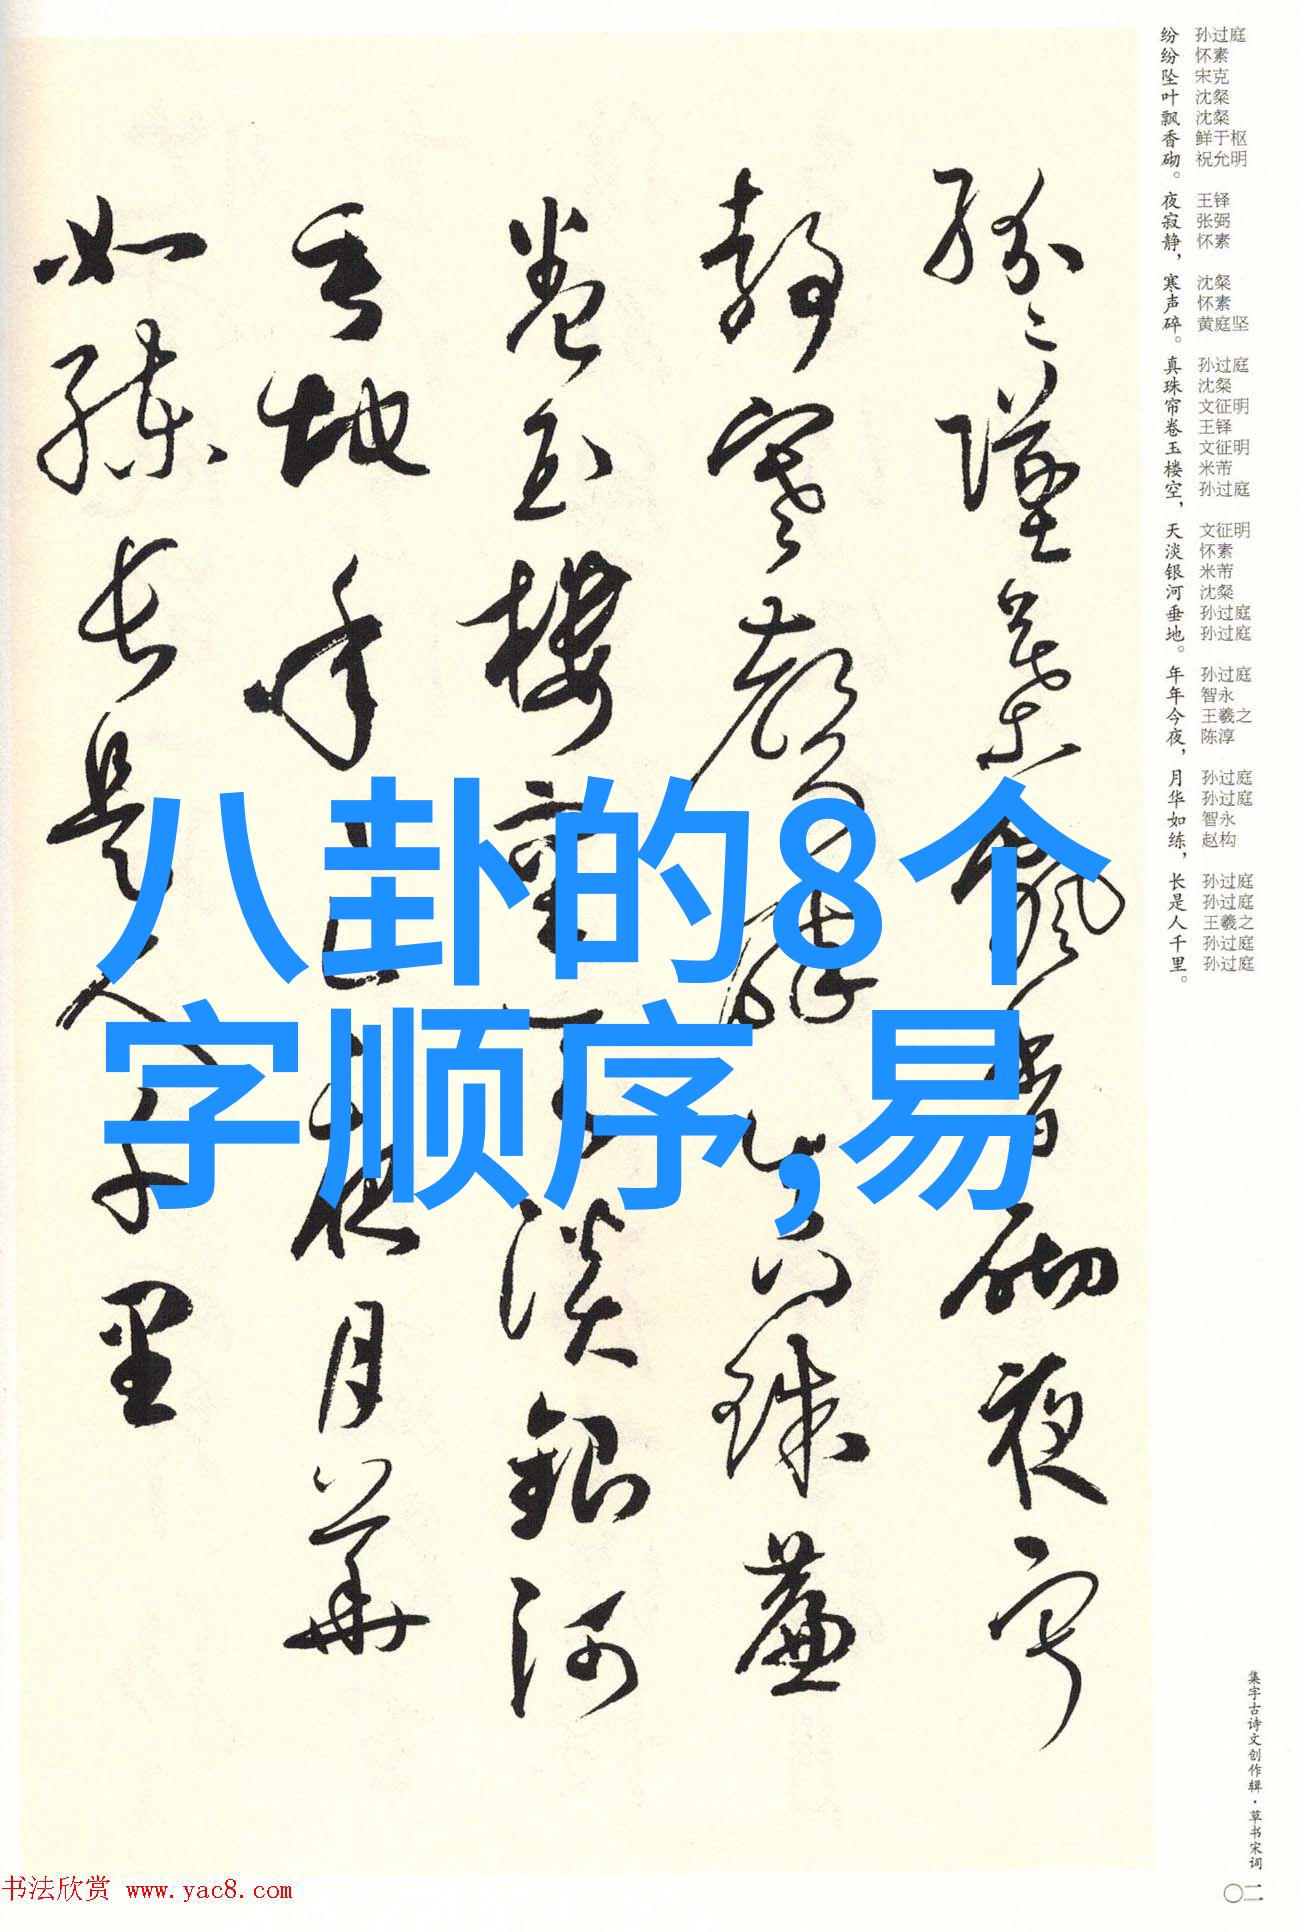 八卦的8个
字顺序,易
孙过庭 怀素 宋克 沈粲 沈粲 鲜于枢 祝允明 王铎 张弼 怀素 沈粲 怀素 黄庭坚 孙过庭 沈粲 文征明 王铎 文征明 米芾 孙过庭 文征明 怀素 米芾 沈粲 孙过庭 孙过庭 孙过庭 智永 王羲之 陈淳 孙过庭 孙过庭 智永 赵构 孙过庭 孙过庭 王羲之 孙过庭 孙过庭
纷纷坠叶飘香砌。夜寂静，寒声碎。真珠帘卷玉楼空，天淡银河垂地。年年今夜，月华如练，长是人千里。
紛〻墜葉飄香砌夜寂
靜寒聲碎真珠簾
卷玉樓空天淡銀河
垂地年〻今夜月華
如練長是人千里
集字古诗文创作辑·草书宋词
〇二
书法欣赏 www.yac8.com